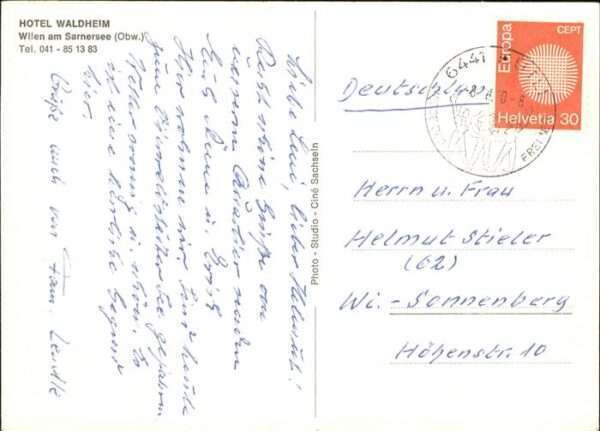 HOTEL WALDHEIM
Wilen am Sarnersee (Obw.)
Tel. 041 - 85 13 83
Liebe lieber Helmut!
Recht schöne Grüße von
unserem Quartier senden
Euch u. Erich
Hier wohnen wir. Sind heute
zum See gefahren
Wetter sonnig u. schön. Es
ist eine herrliche Gegend
hier.
Grüße auch von Fam.
Photo - Studio - Ciné Sachseln
Deutschland
6441
Europa
CEPT
Helvetia 30
Herrn u. Frau
Helmut Stieler
(62)
Wi. - Sonnenberg
Höhenstr. 10